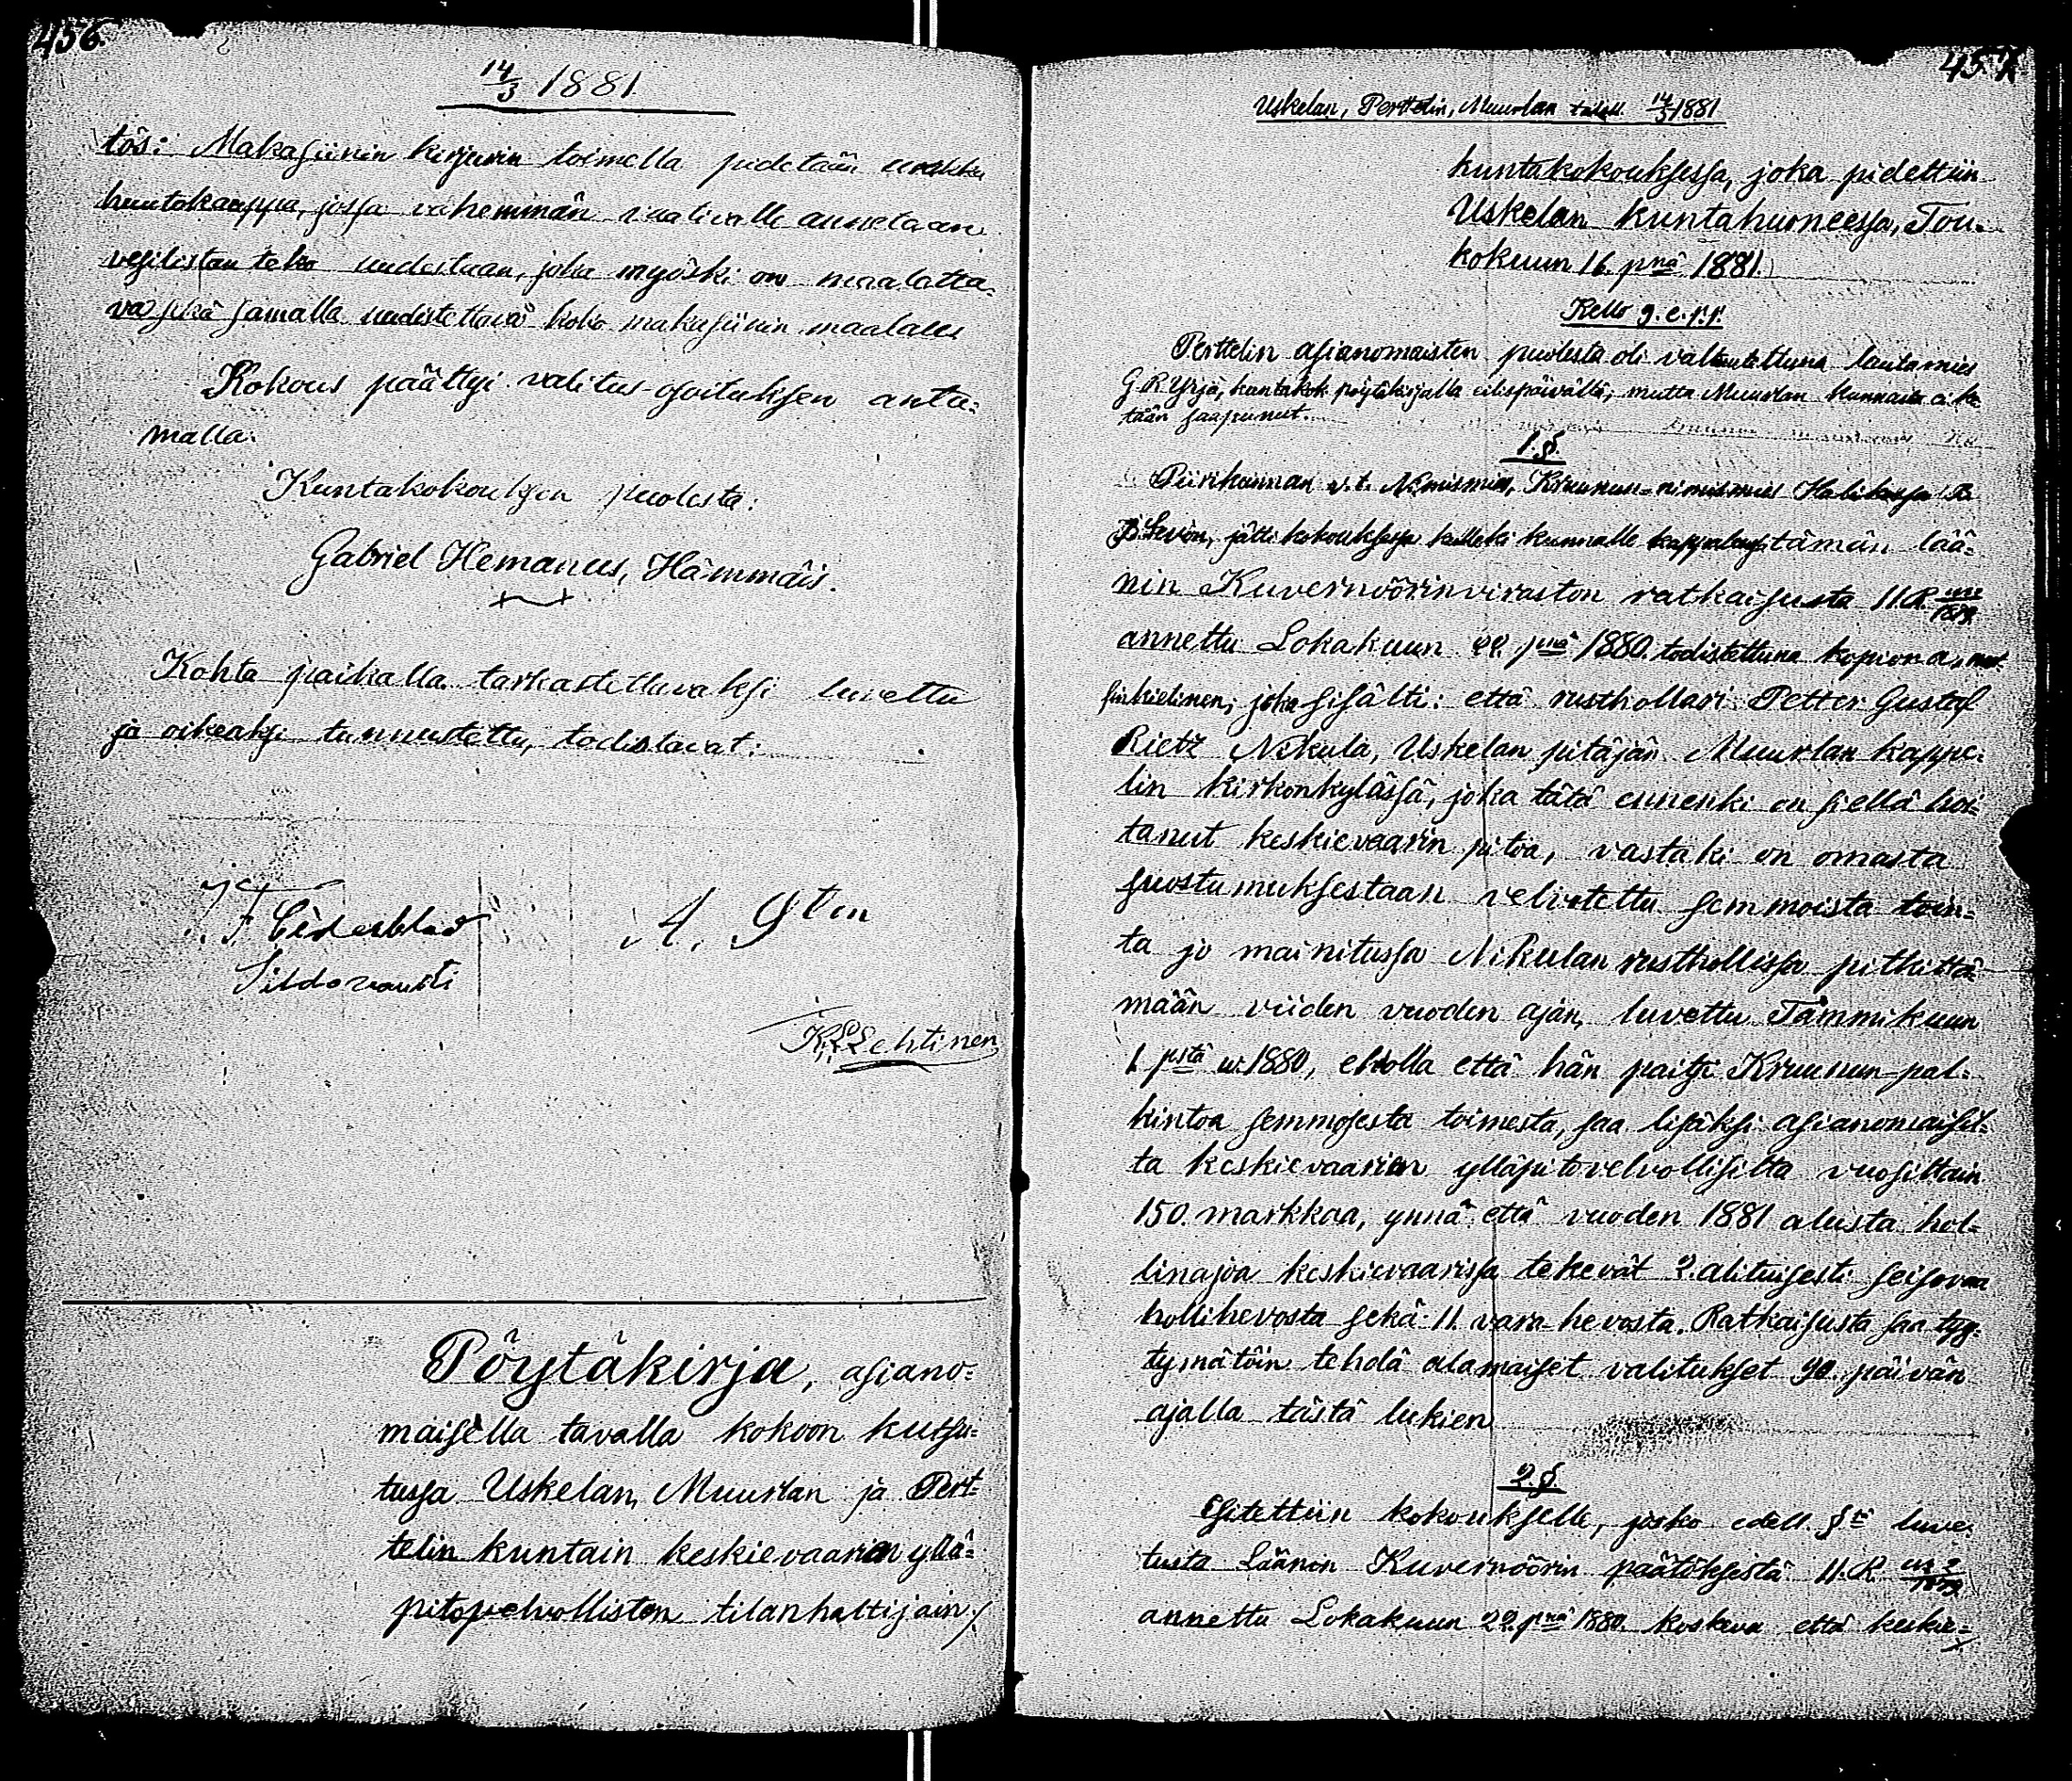 456.
14/3 1881
tös: Makasiinin kirjurin toimella pidetään urakka
huutokauppa, jossa vähemmän vaativalle annetaan
vesilistan teko uudestaan, joka myöski on maalatta-
va, sekä samalla uudistettava koko makasiinin maalaus
Kokous päättyi valitus-osoituksen anta-
malla.
Kuntakokouksen puolesta:
Gabriel Hemanus, Hämmäis.
Kohta paikalla tarkastettavaksi luettu
ja oikeaksi tunnustettu, todistavat:
J. F. Cederblad A. Sten
Siltavouti
K. Lehtinen
Pöytäkirja, asiano-
maisella tavalla kokoon kutsu-
tussa Uskelan, Muurlan ja Pert-
telin kuntain keskievaarin yllä-
pitovelvollisten tilanhaltijain
457.
Uskelan, Perttelin, Muurlan 1881
kuntakokouksessa, joka pidettiin
Uskelan kuntahuoneessa, Tou-
kokuun 16. pnä 1881.
Kello 9. e. p.p.
Perttelin asianomaisten puolesta oli valtuutettuna lautamies
G. R. Yrjä, kuntakok. pöytäkirjalla eilispäivältä; mutta Muurlan kunnasta ei ke-
tään saapunut.
1.§.
Piirikunnan v.t. Nimismies, Kruunun-nimismies Halikossa
Levón, jätti kokouksessa kulleki kunnalle kappaleen tämän lää-
nin Kuvernöörinviraston ratkaisusta II.R. 1879
annettu Lokakuun 22. pnä 1880. todistettuna kopiona, ruot-
sinkielinen, joka sisälti: että rusthollari Petter Gustaf
Rietz Nikula, Uskelan pitäjän Muurlan kappe-
lin kirkonkylässä, joka tätä ennenki on siellä hoi-
tanut keskievaarin pitoa, vastaki on omasta
suostumuksestaan velvotettu semmoista toin-
ta jo mainitussa Nikulan rusthollissa pitkittä-
mään viiden vuoden ajan, luvettu Tammikuun
1. pstä w. 1880, ehdolla että hän paitsi Kruunun-pal-
kintoa semmosesta toimesta, saa lisäksi asianomaisil-
ta keskievaarin ylläpitovelvollisilta vuosittain
150. markkaa, ynnä että vuoden 1881 alusta hol-
linajoa keskievaarissa tekevät 2. alituisesti seisovaa
hollihevosta sekä 11. vara-hevosta. Ratkaisusta saa tyy-
tymätöin tehdä alamaiset valitukset 90. päivän
ajalla tästä lukien
2.§.
Esitettiin kokoukselle, josko edell. §:ssä luve-
tusta Läänin Kuvernöörin päätöksestä II.R. 1879
annettu Lokakuun 22. pnä 1880. koskeva että keskie-